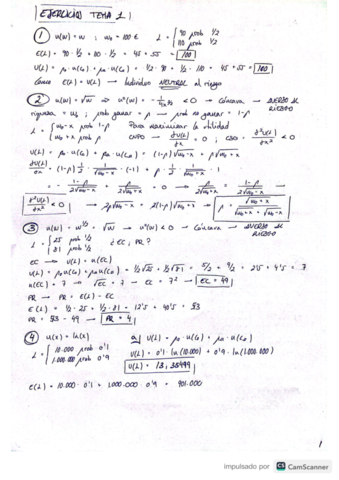 EJERCICIOS TEMA 1
① u(w) = w ; w₀ = 100 € L = { 90 prob 1/2
110 prob 1/2
E(L) = 90 · 1/2 + 110 · 1/2 = 45 + 55 = 100
U(L) = p₀ · u(c₀) + p₁ · u(c₁) = 1/2 · 90 + 1/2 · 110 = 45 + 55 = 100
Como E(L) = U(L) → Individuo NEUTRAL al riesgo
② u(w) = √w → u''(w) < 0 → Cóncava → AVERSO AL RIESGO
riqueza = w₀ ; prob ganar = p → prob no ganar = 1-p
L = { w₀-x prob 1-p
w₀+x prob p
Para maximizar la utilidad
CNPO → ∂U(L)/∂x = 0 ; CSO → ∂²U(L)/∂x² < 0
U(L) = (1-p)√w₀-x + p√w₀+x
∂U(L)/∂x = (1-p) 1/2 · 1/√w₀-x · (-1) + p · 1/2 · 1/√w₀+x · 1
∂²U(L)/∂x² < 0
③ u(w) = √w → u''(w) < 0 → Cóncava → AVERSO AL RIESGO
L = { 25 prob 1/2
81 prob 1/2
¿ EC, PR ?
EC → U(L) = u(EC)
U(L) = 1/2 √25 + 1/2 √81 = 5/2 + 9/2 = 2'5 + 4'5 = 7
u(EC) = 7 → √EC = 7 → EC = 7² → EC = 49
PR → PR = E(L) - EC
E(L) = 1/2 · 25 + 1/2 · 81 = 12'5 + 40'5 = 53
PR = 53 - 49 → PR = 4
④ u(x) = ln(x)
L = { 10.000 prob 0'1
1.000.000 prob 0'9
U(L) = 0'1 · ln(10.000) + 0'9 · ln(1.000.000)
U(L) = 13,35499
E(L) = 10.000 · 0'1 + 1.000.000 · 0'9 = 901.000
1
impulsado por CS CamScanner